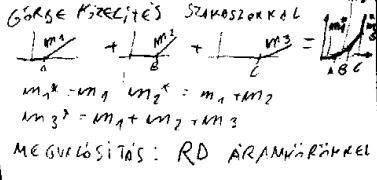 GÖRBE KÖZELÍTÉS SZAKASZOKKAL
m1 + m2 + m3 = m1* m2* m3*
A B C A B C
m1* = m1 m2* = m1 + m2
m3* = m1 + m2 + m3
MEGVALÓSÍTÁS: RD ÁRAMKÖRÖKKEL